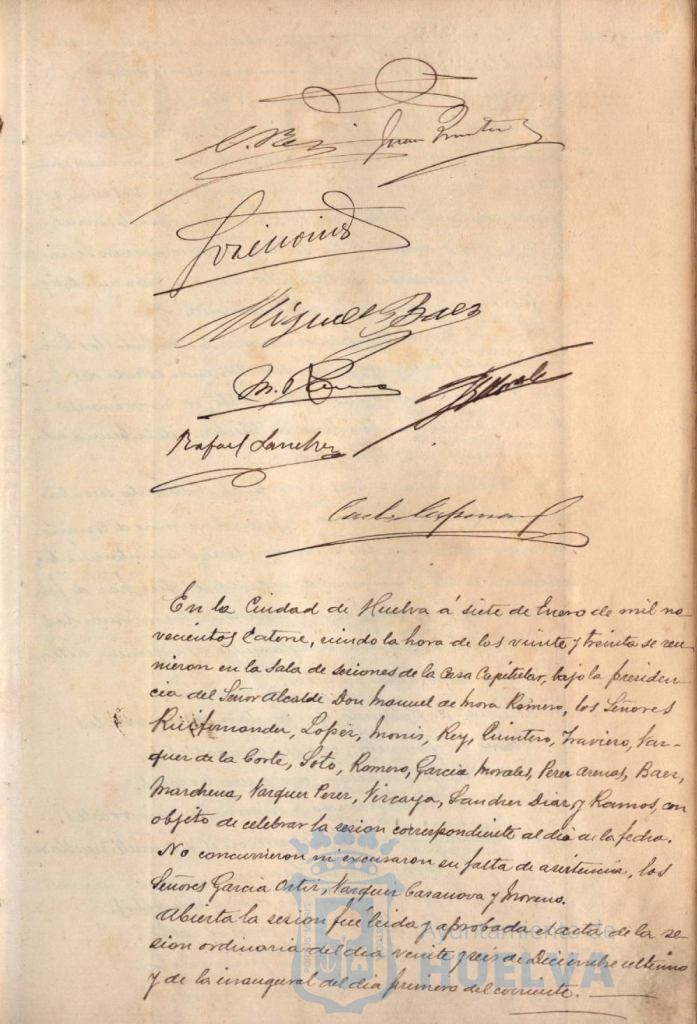 Miguel Baez
Rafael Sanchez
En la Ciudad de Huelva á siete de Enero de mil no-
vecientos Catorce, siendo la hora de las veinte y treinta se reu-
nieron en la Sala de sesiones de la Casa Capitular, bajo la presiden-
cia del Señor Alcalde Don Manuel de Mora Romero, los Señores
Ruifernandez, Lopez, Monis, Rey, Quintero, Traviero, Vaz-
quez de la Corte, Soto, Romero, Garcia Morales, Perez Arenas, Baez,
Marchena, Vazquez Perez, Vizcaya, Sanchez Diaz y Ramos, con
objeto de celebrar la sesion correspondiente al dia de la fecha.
No concurrieron ni excusaron su falta de asistencia, los
Señores Garcia Ortiz, Vazquez Casanova y Moreno.
Abierta la sesion fué leida y aprobada el acta de la se-
sion ordinaria del dia veinte y seis de Diciembre ultimo
y de la inaugural del dia primero del corriente.
Ayuntamiento de
HUELVA